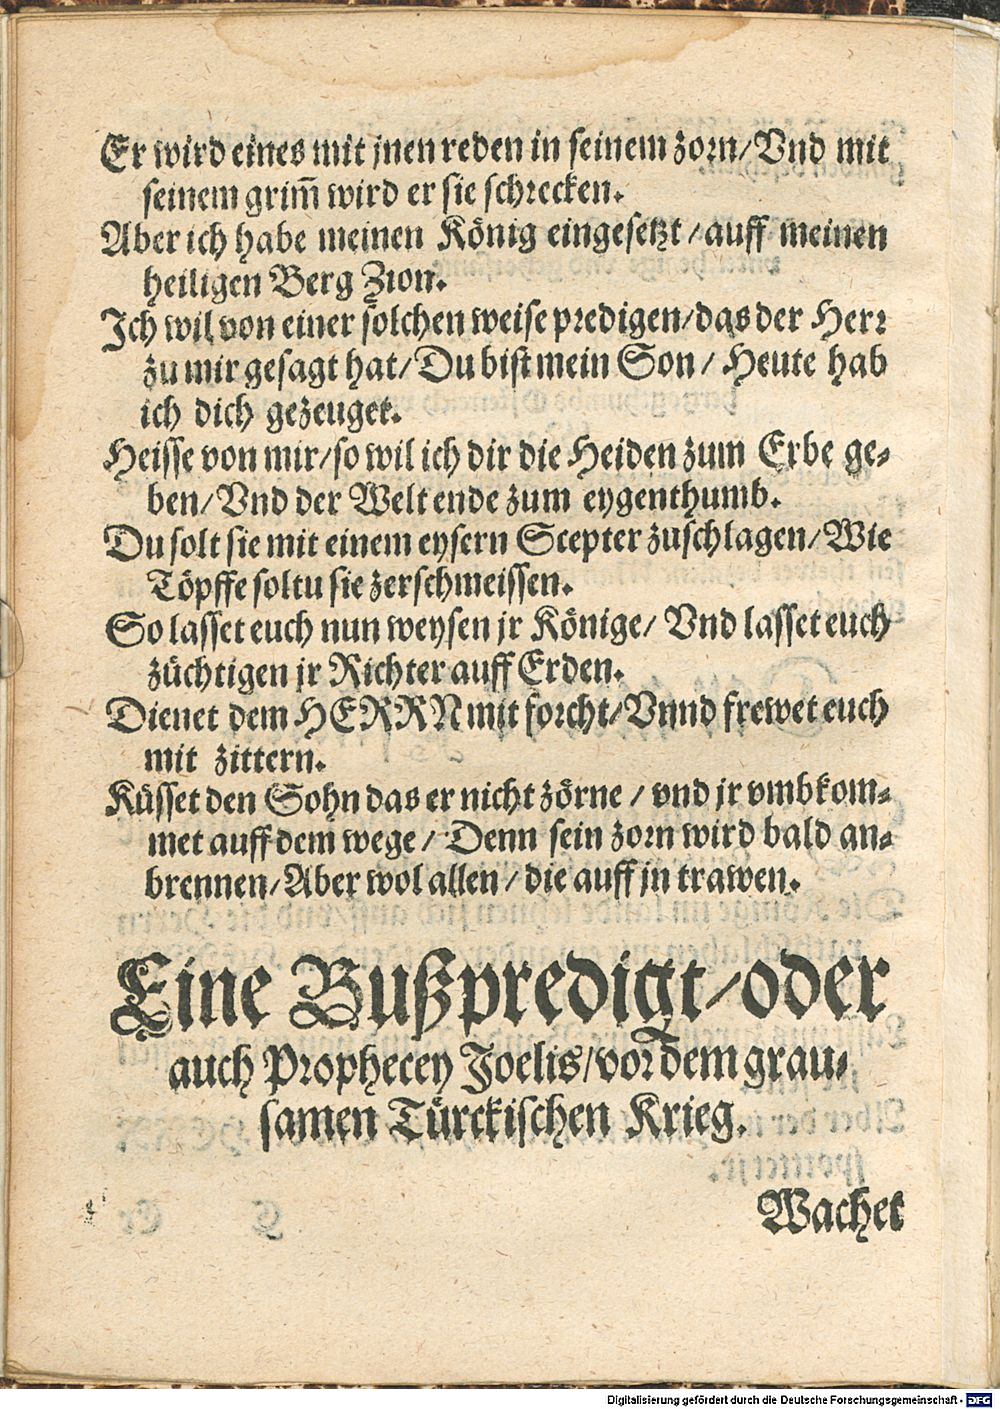 Er wird eines mit jnen reden in seinem zorn/Vnd mit
seinem grim̄ wird er sie schrecken.
Aber ich habe meinen König eingesetzt/auff meinen
heiligen Berg Zion.
Ich wil von einer solchen weise predigen/das der Herr
zu mir gesagt hat/Du bist mein Son/Heute hab
ich dich gezeuget.
Heisse von mir/so wil ich dir die Heiden zum Erbe ge-
ben/Vnd der Welt ende zum eygenthumb.
Du solt sie mit einem eysern Scepter zuschlagen/Wie
Töpffe soltu sie zerschmeissen.
So lasset euch nun weysen jr Könige/Vnd lasset euch
züchtigen jr Richter auff Erden.
Dienet dem HERRN mit forcht/Vnnd frewet euch
mit zittern.
Küsset den Sohn das er nicht zörne/vnd jr vmbkom-
met auff dem wege/Denn sein zorn wird bald an-
brennen/Aber wol allen/die auff jn trawen.
Eine Bußpredigt/oder
auch Prophecey Joelis/vor dem grau-
samen Türckischen Krieg.
Wachet
Digitalisierung gefördert durch die Deutsche Forschungsgemeinschaft - DFG